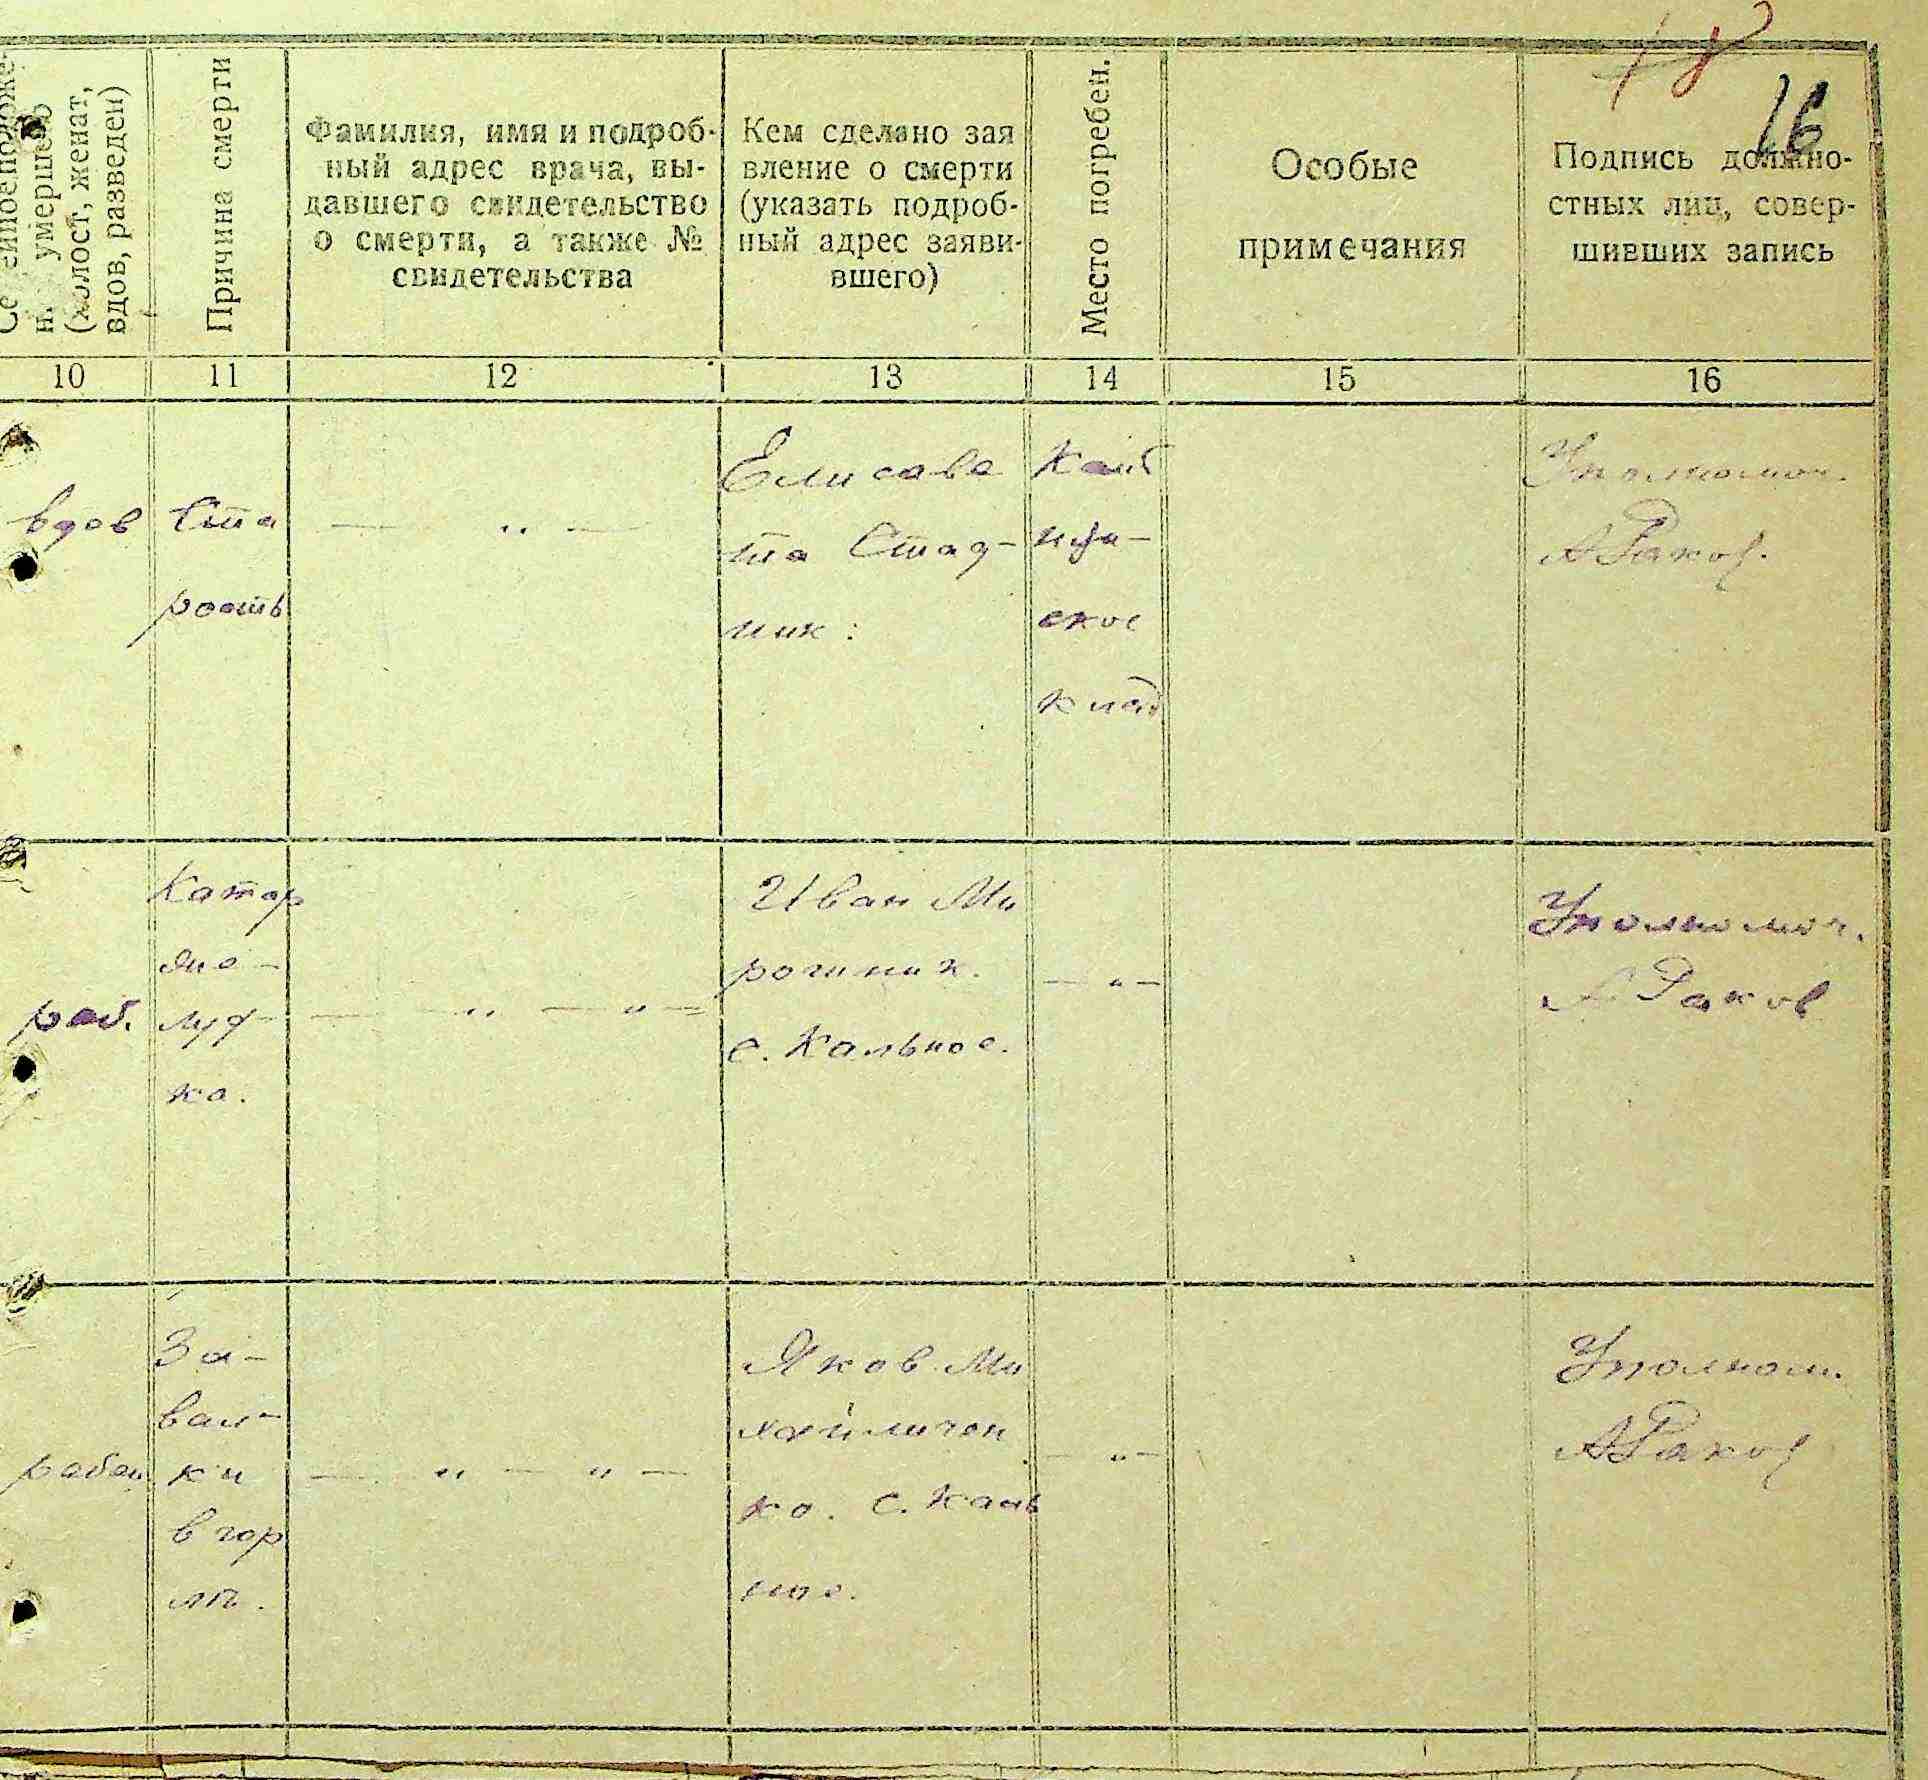 18
16
Семейноеположе-
н. умерших
(холост, женат,
вдов, разведен)
Причина смерти
Фамилия, имя и подроб-
ный адрес врача, вы-
давшего свидетельство
о смерти, а также №
свидетельства
Кем сделано зая
вление о смерти
(указать подроб-
ный адрес заяви-
вшего)
Место погребен.
Особые
примечания
Подпись должно-
стных лиц, совер-
шивших запись
10 11 12 13 14 15 16
вдов
Ста
рость
— „ —
Елисаве
та Стад-
ник:
ское
клад
Уполномоч.
А Раков.
реб.
Катар
желу
- — „ — „ —
Иван Ми
рошник.
с. Кальное.
— „ —
Уполномоч.
А Раков
ребен
За-
вал-
ки
в гор
ле.
— „ — „ —
Яков Ми
хайличен
ко. с. Каль
ное.
— „ —
Уполном.
А Раков